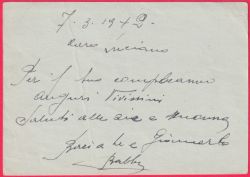 7-3-1942-
Caro Luciano
Per il tuo compleanno
auguri vivissimi
Saluti alle zie e nonna
Baci a te e Giancarlo
Babbo